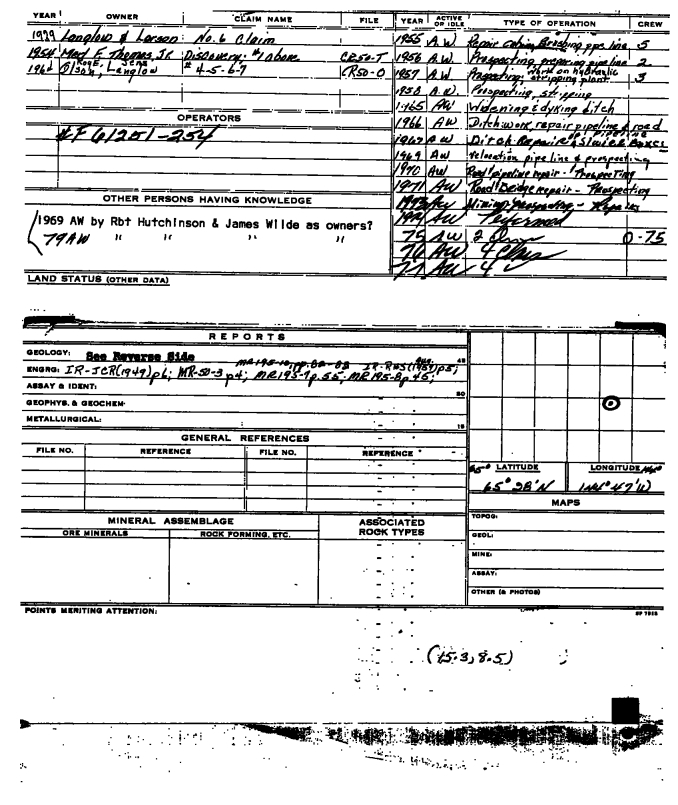 YEAR OWNER CLAIM NAME FILE
Langlow & Larsen No. 6 Claim
1954 Med F. Thomas, Jr. Discovery, #1 above CR50-T
Langlow #4-5-6-7 CR50-O
OPERATORS
#F 61251-254
OTHER PERSONS HAVING KNOWLEDGE
1969 AW by Rbt Hutchinson & James Wilde as owners?
79 AW " " " "
LAND STATUS (OTHER DATA)
YEAR ACTIVE OR IDLE TYPE OF OPERATION CREW
1955 A.W. Repair cabin, Brushing pipe line 5
1956 A.W. Prospecting, preparing pipeline 2
1957 A.W. Prospecting, work on hydraulic stripping plant 3
1958 A.W. Prospecting, stripping
1965 AW Widening & dyking ditch
1966 AW Ditch work, repair pipeline & road
1967 AW Ditch Repair
1969 AW relocation pipe line & prospecting
1970 AW Road/pipeline repair - Prospecting
1971 AW Road/Bridge repair - Prospecting
AW Mining Prospecting - Repairs
AW Performed
75 AW 2 0-75
76 AW 4
77 AW 4
REPORTS
GEOLOGY: See Reverse Side
MR195-10, pp.82-83 IR-RWS(1959)p5;
ENGRG: IR-JCR(1949)p6; MR-50-3 p4; MR195-7p.55; MR195-8p45;
ASSAY & IDENT:
GEOPHYS. & GEOCHEM:
METALLURGICAL:
GENERAL REFERENCES
FILE NO. REFERENCE FILE NO. REFERENCE
LATITUDE LONGITUDE
65° 28'N 144° 47'W
MAPS
TOPOG:
GEOL:
MINE:
ASSAY:
OTHER (& PHOTOS)
MINERAL ASSEMBLAGE
ORE MINERALS ROCK FORMING, ETC.
ASSOCIATED ROCK TYPES
POINTS MERITING ATTENTION:
(15.3, 8.5)